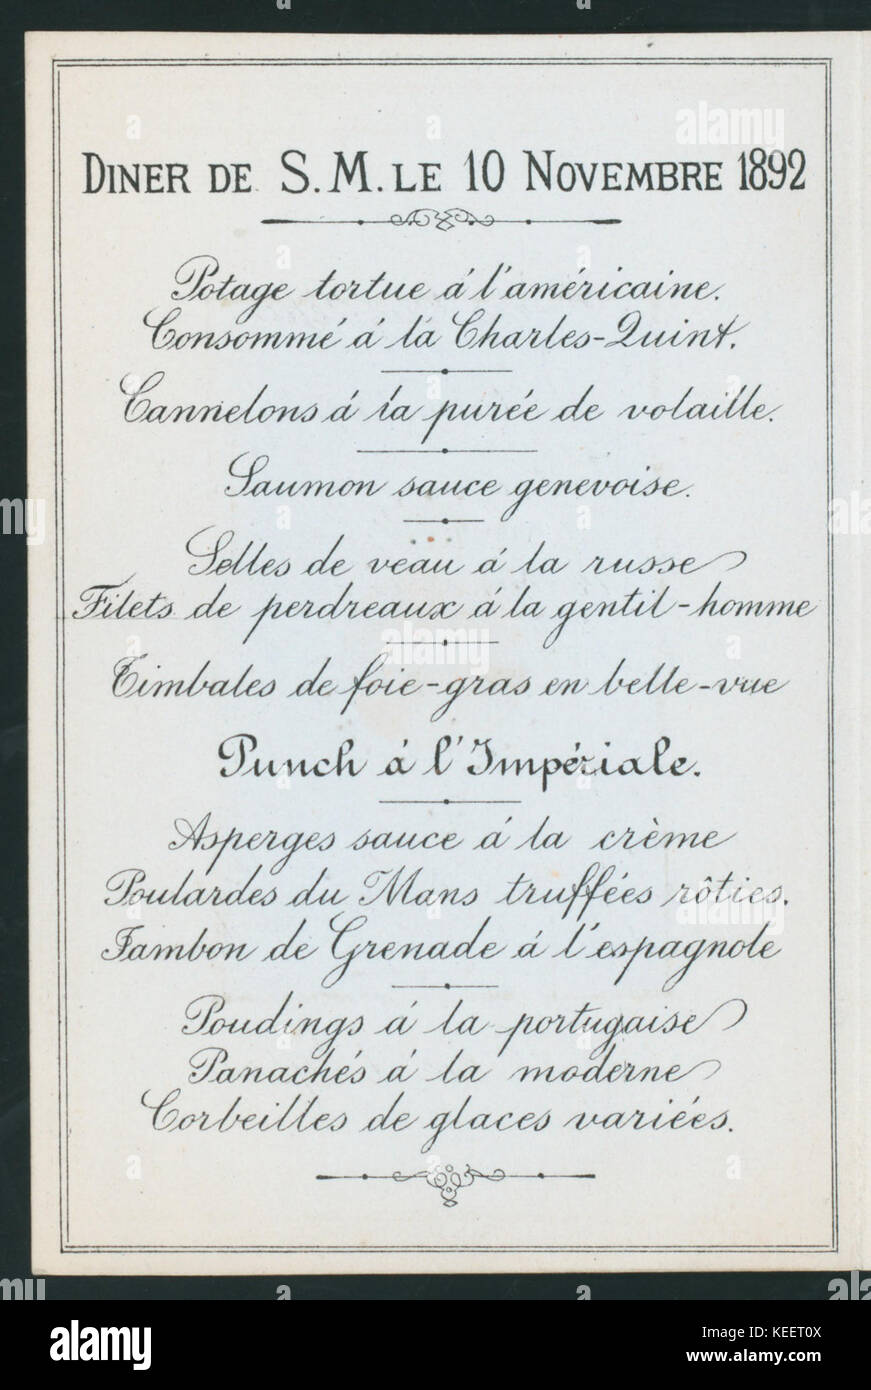 DINER DE S. M. LE 10 NOVEMBRE 1892
Potage tortue á l'américaine.
Consommé á la Charles-Quint.
Cannelons á la purée de volaille.
Saumon sauce genevoise.
Selles de veau á la russe
Filets de perdreaux á la gentil-homme
Timbales de foie-gras en belle-vue
Punch á l'Impériale.
Asperges sauce á la crème
Poulardes du Mans truffées rôties.
Jambon de Grenade á l'espagnole
Poudings á la portugaise
Panachés á la moderne
Corbeilles de glaces variées.
alamy
Image ID: KEET0X
www.alamy.com